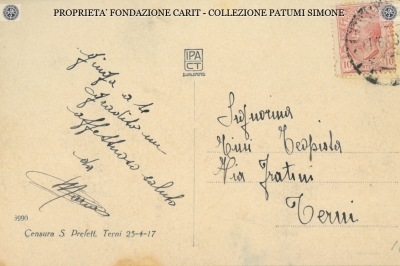 PROPRIETA' FONDAZIONE CARIT - COLLEZIONE PATUMI SIMONE
IPA
CT
Giunga a te
gradito un
affettuoso saluto
da
Signorina
Teofista
Via Fratini
Terni
3990
Censura S. Prefett. Terni 25-4-17